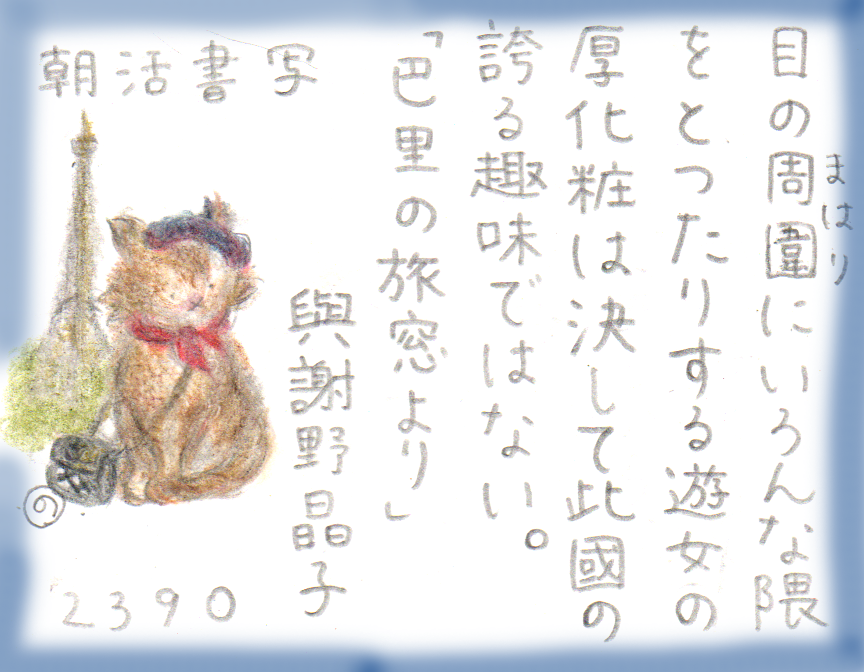 目の周圍にいろんな隈
まはり
をとつたりする遊女の
厚化粧は決して此國の
誇る趣味ではない。
「巴里の旅窓より」
與謝野晶子
朝活書写
2390
の